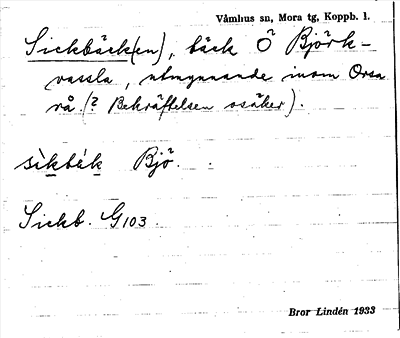 Våmhus sn, Mora tg, Koppb. l.
Sickbäck(en), bäck Ö Björk-
vassla, utmynnande inom Orsa
rå. (? Bekräftelsen osäker).
sìkbäk Bjö.
Sickb. G103.
Bror Lindén 1933